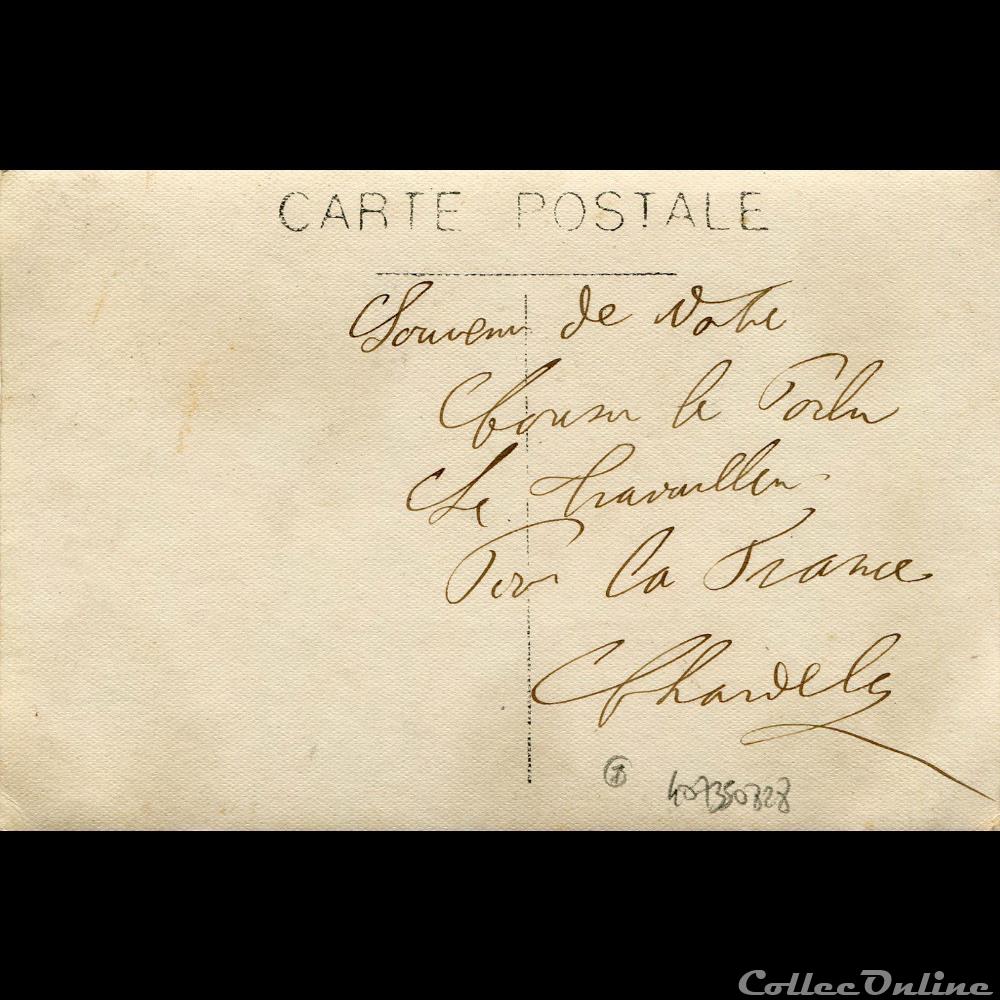 CARTE POSTALE
Souvenir de Notre
le Poilu
Le travailleur
Pour la France
407350828
CollecOnline